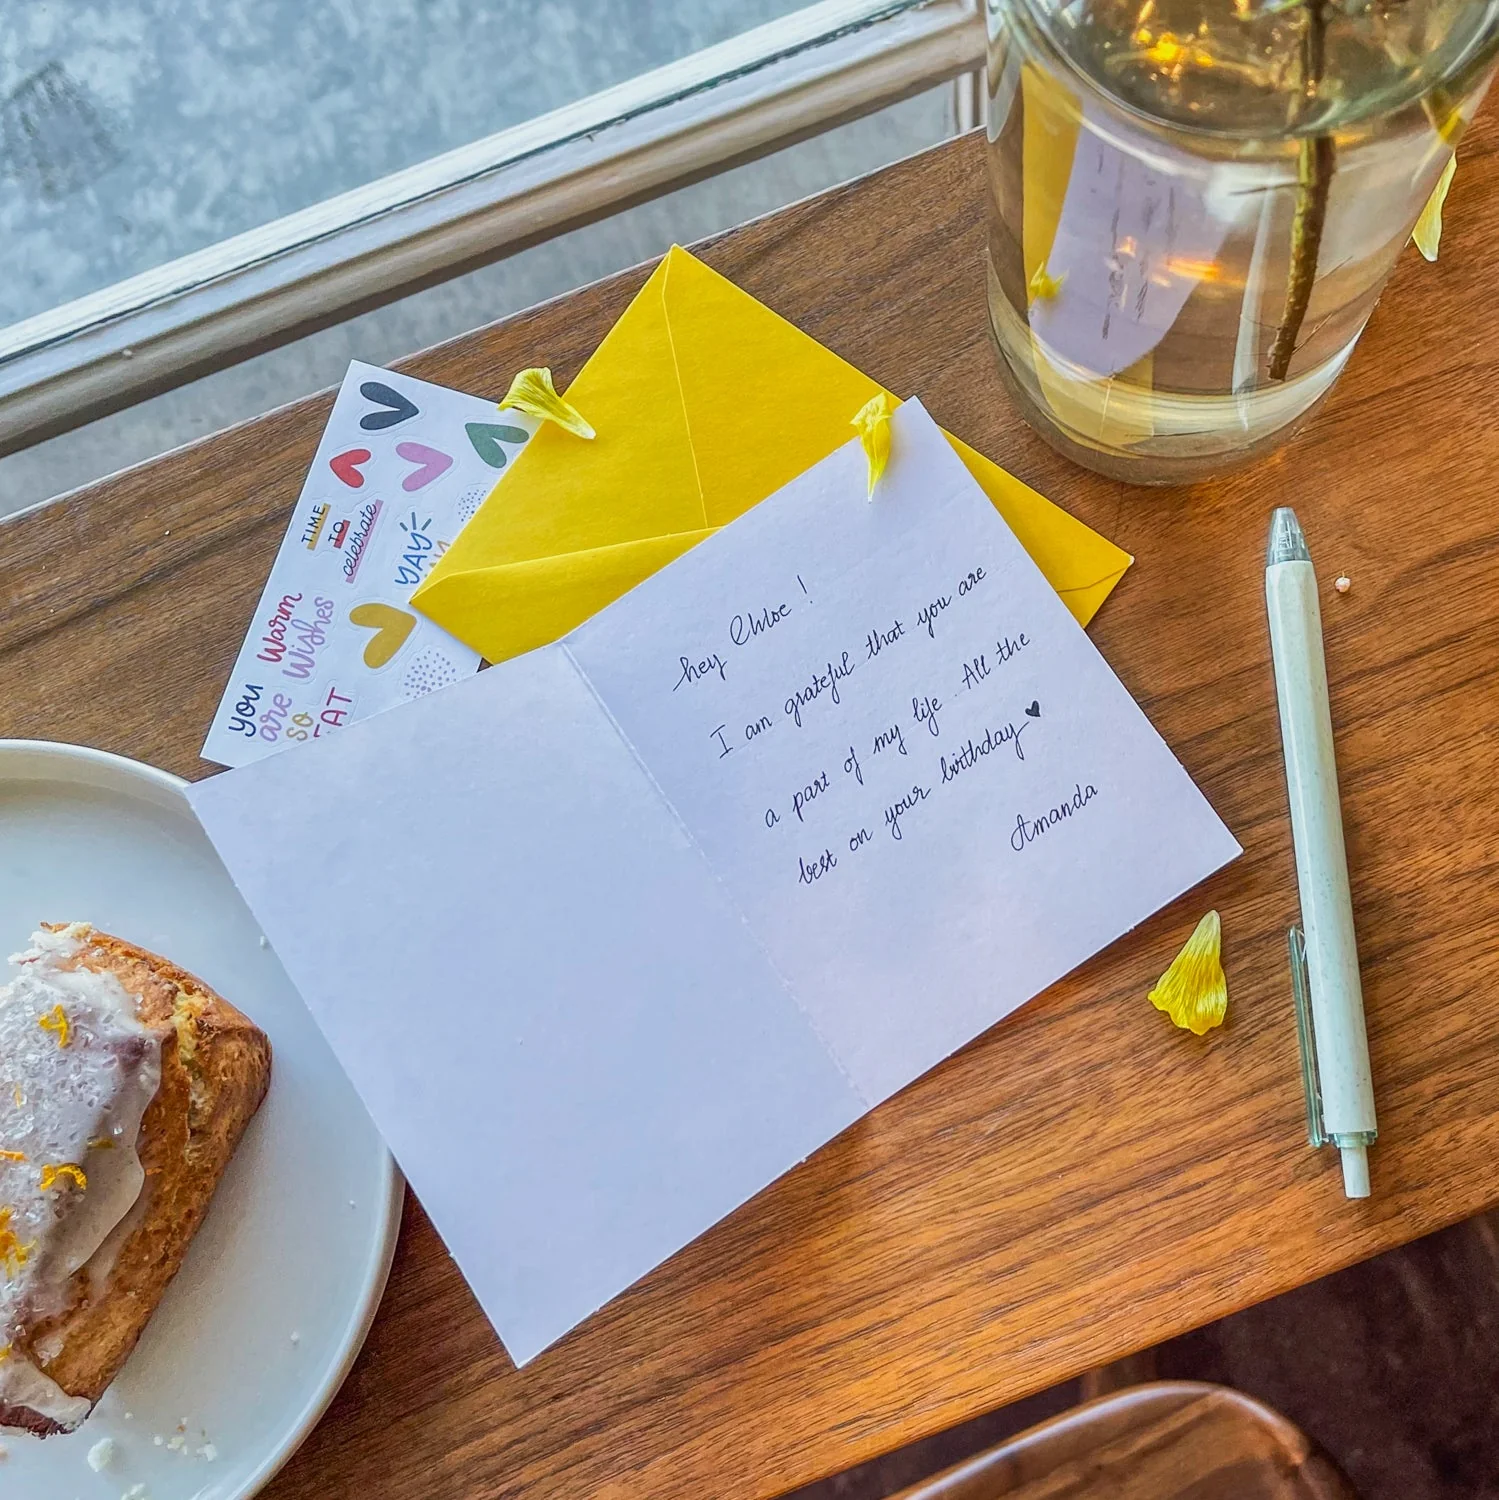 TIME
TO
celebrate
YAY
YOU
are
so
Warm
Wishes
hey Chloe !
I am grateful that you are
a part of my life. All the
best on your birthday ♥
Amanda